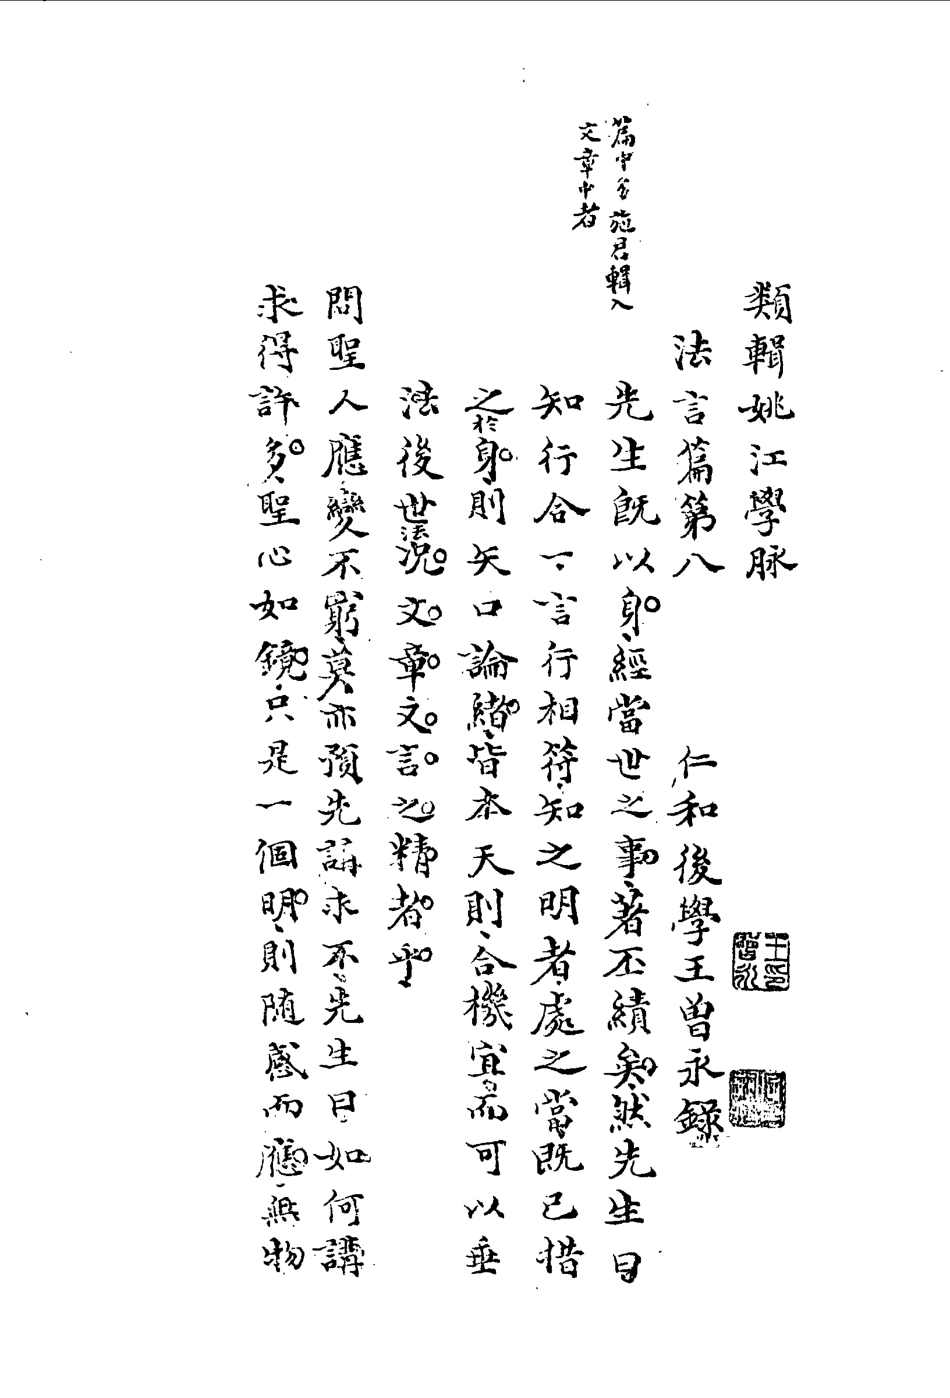 類輯姚江學脉
法言篇第八 仁和後學王曾永録
篇中多施君輯入
文章中者
先生旣以身經當世之事著丕績矣然先生曰
知行合一言行相符知之明者處之當旣已措
之於身則矢口論緒皆本天則合機宜而可以垂
法後世法況文章文言之精者乎
問聖人應變不窮莫亦預先講求不先生曰如何講
求得許多聖心如鏡只是一個明則随感而應無物